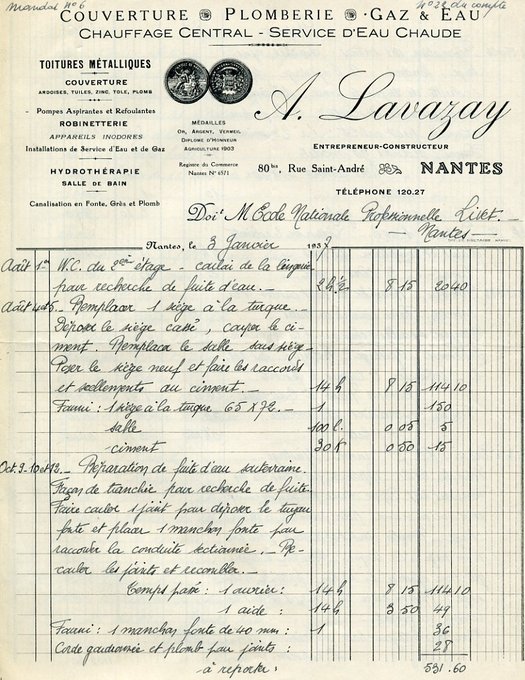 Mandat Nº 6
Nº 22 du compte
COUVERTURE • PLOMBERIE • GAZ & EAU
CHAUFFAGE CENTRAL - SERVICE D'EAU CHAUDE
TOITURES MÉTALLIQUES
COUVERTURE
ARDOISES, TUILES, ZINC, TOLE, PLOMB
Pompes Aspirantes et Refoulantes
ROBINETTERIE
APPAREILS INODORES
Installations de Service d'Eau et de Gaz
HYDROTHÉRAPIE
SALLE DE BAIN
Canalisation en Fonte, Grès et Plomb
MÉDAILLES
OR, ARGENT, VERMEIL
DIPLOME D'HONNEUR
AGRICULTURE 1903
Registre du Commerce
Nantes Nº 6571
A. Lavazay
ENTREPRENEUR-CONSTRUCTEUR
80bis, Rue Saint-André NANTES
TÉLÉPHONE 120.27
Doit M Ecole Nationale Professionnelle Livet.
- Nantes -
Nantes, le 3 Janvier 1937
Août 1er W.C. du 2ème étage - couloi de la lingerie
pour recherche de fuite d'eau. - 2h ½ 8 15 20 40
Août 4 et 5. - Remplacer 1 siège à la turque. -
Déposer le siège cassé, couper le ci-
ment. Remplacer le sable sous siège -
Poser le siège neuf et faire les raccords
et scellements au ciment. - 14h 8 15 114 10
Fourni : 1 siège à la turque 65 x 72. - 1 150
sable 100 l. 0 05 5
ciment 30 K 0 50 15
Oct. 9-10 et 12. - Réparation de fuite d'eau souterraine.
Façon de tranchée pour recherche de fuite.
Faire couler 1 joint pour déposer le tuyau
fonte et placer 1 manchon fonte pour
raccorder la conduite sectionnée. - Re-
couler les joints et recombler. -
Temps passé : 1 ouvrier : 14h 8 15 114 10
1 aide : 14h 3 50 49
Fourni : 1 manchon fonte de 40 mm : 1 36
Corde goudronnée et plomb pour joints : 28
à reporter : 531.60